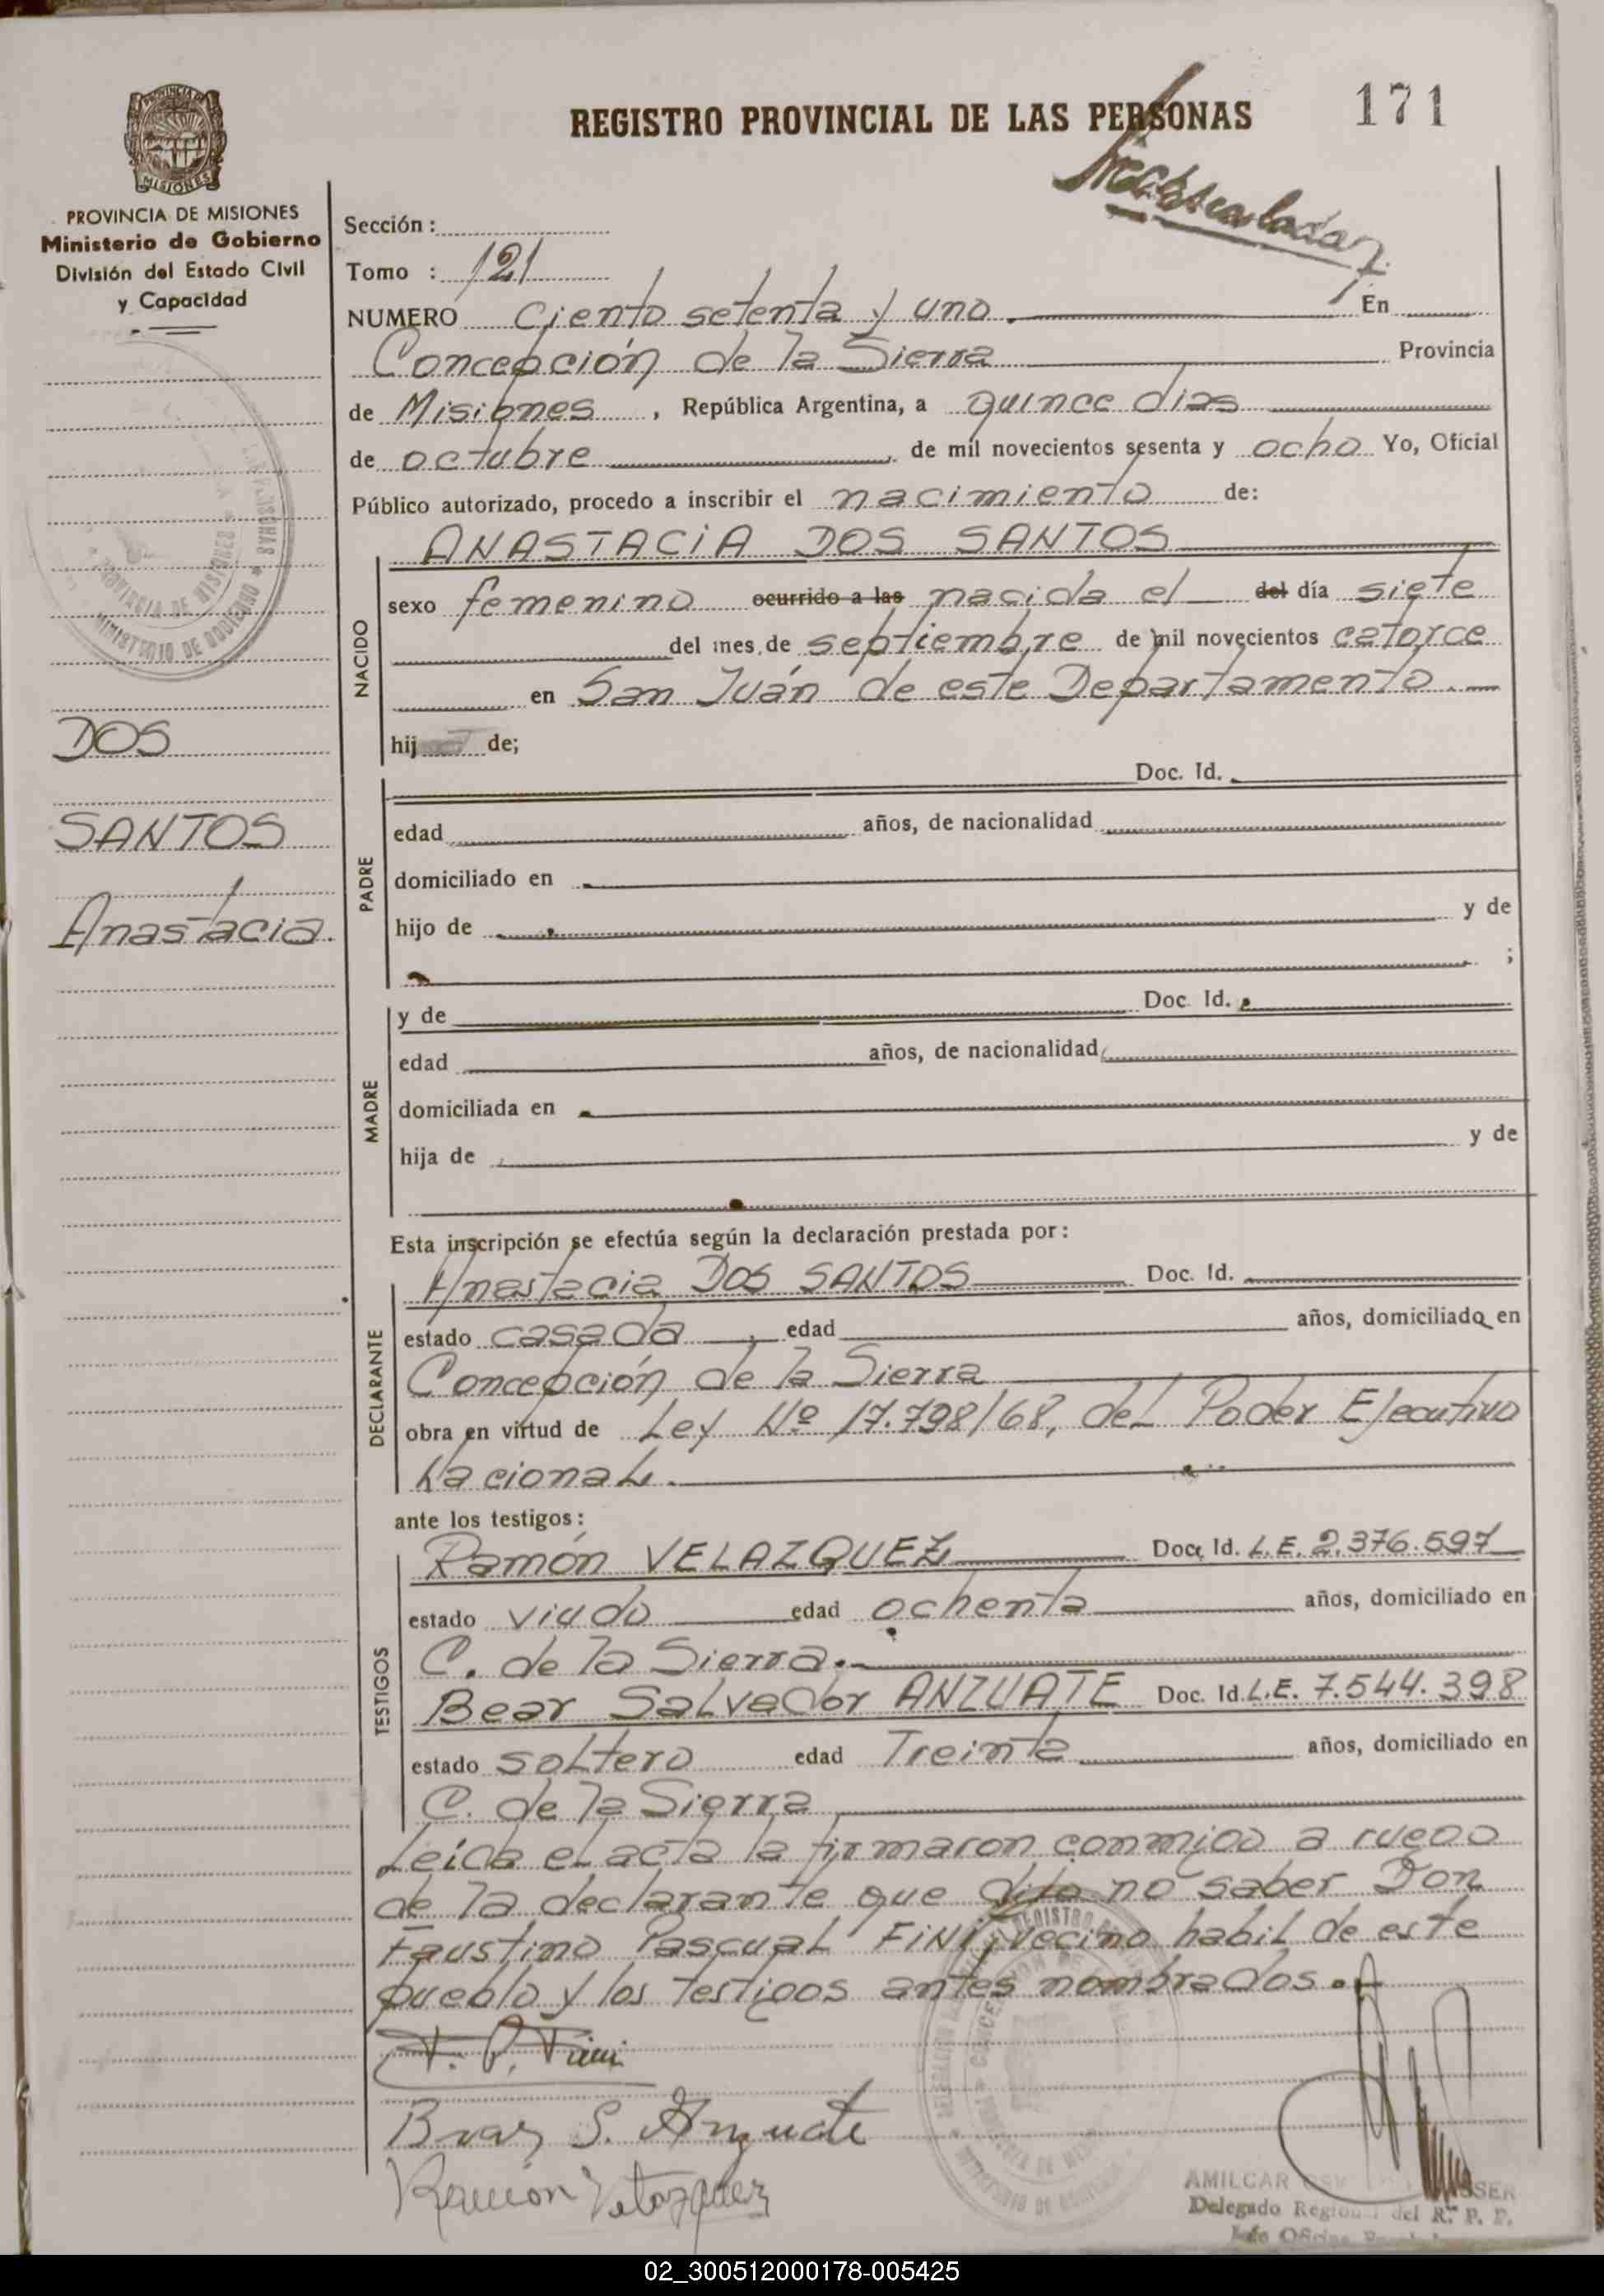 REGISTRO PROVINCIAL DE LAS PERSONAS
171
PROVINCIA DE MISIONES
Ministerio de Gobierno
División del Estado Civil
y Capacidad
Sección:
Tomo : 121
NUMERO Ciento setenta y uno. En
Concepción de la Sierra Provincia
de Misiones, República Argentina, a quince dias
de octubre, de mil novecientos sesenta y ocho Yo, Oficial
Público autorizado, procedo a inscribir el nacimiento de:
NACIDO
ANASTACIA DOS SANTOS
sexo femenino ocurrido a las nacida el del día siete
del mes de septiembre de mil novecientos catorce
en San Juán de este Departamento.
hij de;
DOS
SANTOS
Anastacia.
PADRE
Doc. Id.
edad años, de nacionalidad
domiciliado en
hijo de y de
;
MADRE
y de Doc Id.
edad años, de nacionalidad
domiciliada en
hija de y de
Esta inscripción se efectúa según la declaración prestada por:
DECLARANTE
Anastacia DOS SANTOS Doc. Id.
estado casada, edad años, domiciliado en
Concepción de la Sierra
obra en virtud de Ley Nº 17.798/68, del Poder Ejecutivo
Nacional.
ante los testigos:
TESTIGOS
Ramón VELAZQUEZ Doc. Id. L.E. 2.376.597
estado viudo edad ochenta años, domiciliado en
C. de la Sierra.
Salvador ANZUATE Doc. Id. L.E. 7.544.398
estado soltero edad Treinta años, domiciliado en
C. de la Sierra
Leída el acta la firmaron conmigo a ruego
de la declarante que dijo no saber Don
Faustino Pascual FINI, vecino habil de este
pueblo y los testigos antes nombrados.
F. P. Fini
S. Anzuate
Ramón Velazquez
AMILCAR
Delegado Regional del R. P. P.
02_300512000178-005425